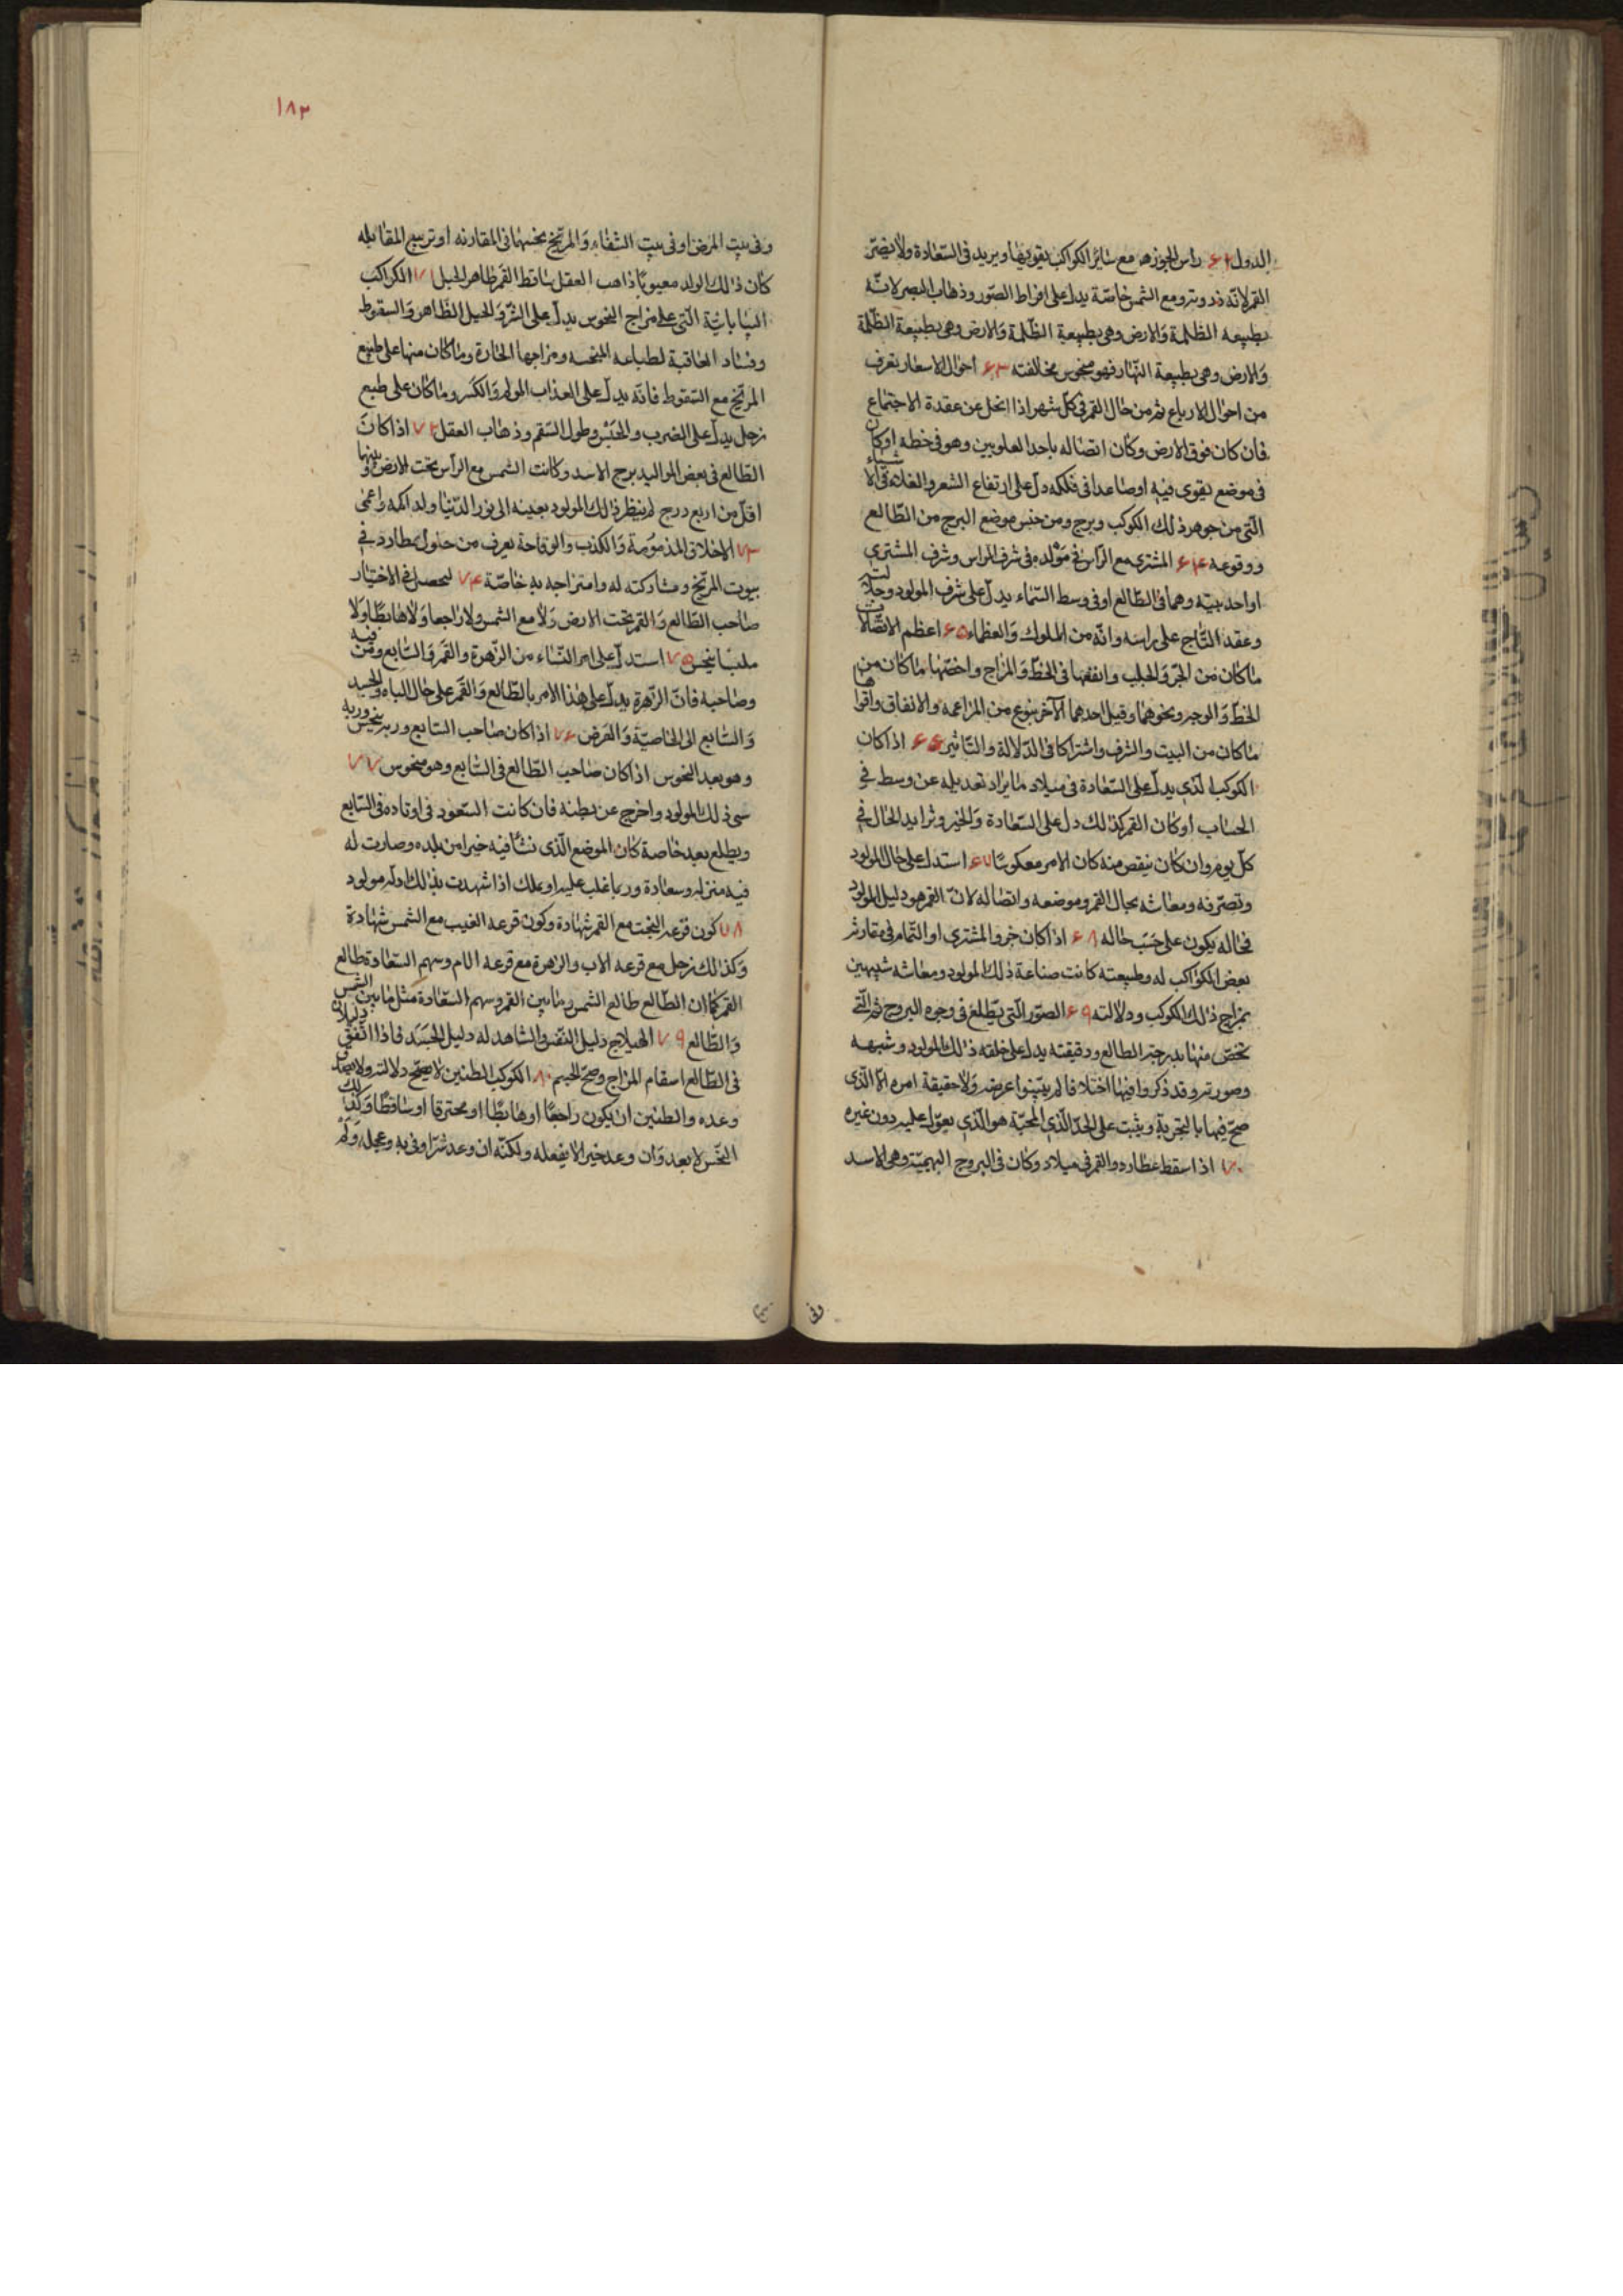 الدول ۶۲ رأس الجوزهر مع سائر الكواكب يقويها ويزيد فى السّعادة ولا يضرّ
القمر لانّه ذروته ومع الشمس خاصّة يدلّ على افراط الصّور وذهاب البصر لانّه
بطبيعه الظلمة والارض وهى بطبيعة الظّلمة والارض وهى بطبيعة الظّلمة
والارض وهى بطبيعة النّهار فهو منحوس بمخالفته ۶۳ احوال الاسعار تعرف
من احوال الارباع ثم من حال القمر فى كلّ شهر اذا انحلّ عن عقدة الاجتماع
فان كان فوق الارض وكان اتصاله باحد العلويين وهو فى حظه اوكان
فى موضع يقوى فيه اوصاعدا فى فلكه دلّ على ارتفاع الشعر والغلاء فى الاشياء
الّتى من جوهر ذلك الكوكب وبرج ومن جنس موضع البرج من الطّالع
ووقوعه ۶۴ المشترى مع الرّأس فى مولد فى شرف الراس وشرف المشترى
او احد بيته وهما فى الطّالع اوفى وسط السّماء يدلّ على شرف المولود وجلالته
وعقد التّاج على راسه وانّه من الملوك والعظماء ۶۵ اعظم الاتّصالات
ما كان من الجرّ والجلب وانفعها فى الحظّ والمزاج واخصّها ما كان من
الحظّ والوجه ونحوهما وقيل احدهما الآخر بنوع من المزاعمه والاتفاق واقواها
ما كان من البيت والشرف واشتراكا فى الدّلالة والتّاثير ۶۶ اذا كان
الكوكب الّذى يدلّ على السّعادة فى ميلاد ما يزاد تعديله عن وسط فى
الحساب او كان القمر كذلك دلّ على السّعادة والخير وتزايد الحال فى
كلّ يوم وان كان ينقص منه كان الامر معكوسًا ۶۷ استدلّ على حال المولود
وتصرّفه ومعاشه بحال القمر وموضعه واتصاله لانّ القمر هو دليل المولود
فحاله يكون على حسب حاله ۶۸ اذا كان جزو المشترى او التّمام فى مقارنه
بعض الكواكب له وطبيعته كانت صناعة ذلك المولود ومعاشه شبيهين
بمزاج ذلك الكوكب ودلالته ۶۹ الصّور الّتى يطلع فى وجوه البروج ثم الّتى
تخصّ منها بدرجة الطالع ودقيقته يدلّ على خلقه ذلك المولود وشبهه
وصورته وقد ذكروا فيها اختلافا لم يبيّنوا عرضه ولا حقيقة امره الّا الّذى
صحّ فيها بالتجربة ويثبت على الحدّ الّذى المحبّة هو الّذى يعوّل عليه دون غيره
۷۰ اذا سقط عطارد والقمر فى ميلاد وكان فى البروج البهيميّة وهى الاسد
۱۸۳
وفى بيت المرض اوفى بيت الشّقاء والمرّيخ بنحسهما فى المقارنه او تربيع المقابله
كان ذلك الولد معيوبًا ذاهب العقل ساقط القمر ظاهر الخبل ۷۱ الكواكب
البيابانيّة الّتى على مزاج النحوس يدلّ على الشّرّ والحيل الظّاهر والسقوط
وفساد العاقبة لطباعه المنحسه ومزاجها الحارّة وما كان منها على طبع
المرّيخ مع السّقوط فانّه يدلّ على العذاب المولم والكسر وما كان على طبع
زحل يدلّ على الضرب والحبس وطول السّقم وذهاب العقل ۷۲ اذا كان
الطّالع فى بعض المواليد برج الاسد وكانت الشمس مع الرّأس تحت الارض وبينهما
اقلّ من اربع درج لم ينظر ذلك المولود بعينه الى نور الدّنيا وولد اكمه واعمى
۷۳ الاخلاق المذمومة والكذب والوقاحة يعرف من حلول عطارد فى
بيوت المرّيخ ومشاركته له وامتزاجه به خاصّة ۷۴ ليحصل فى الاختيار
صاحب الطّالع والقمر تحت الارض ولا مع الشمس ولا راجعا ولا هابطا ولا
ملتبسا بنحس ۷۵ استدلّ على امر النّساء من الزّهرة والقمر والسّابع ومن فيه
وصاحبه فانّ الزّهرة يدلّ على هذا الامر بالطّالع والقمر على حال الباه والجسد
والسّابع الى الخاصيّة والغرض ۷۶ اذا كان صاحب السّابع وربه بنحس وربه
وهو بعد النحوس اذا كان صاحب الطّالع فى السّابع وهو منحوس ۷۷
سى ذلك المولود واخرج عن وطنه فان كانت السّعود فى اوتاده فى السّابع
ويطلع بعيد خاصة كان الموضع الّذى نشأ فيه خيرا من بلده وصارت له
فيه منزله وسعادة وربما غلب عليه او ملك اذا شهدت بذلك ادلّه مولود
۷۸ كون قرعه البخت مع القمر شهادة وكون قرعه الغيب مع الشمس شهادة
وكذلك زحل مع قرعه الاب والزهرة مع قرعه الام وسهم السّعادة طالع
القمر كما ان الطّالع طالع الشمس وما بين القمر وسهم السّعادة مثل ما بين الشمس
والطّالع ۷۹ الهيلاج دليل النّفس والشاهد له دليل الجسد فاذا اتّفق دليلان
فى الطّالع استقام المزاج وصحّ الجسم ۸۰ الكوكب الظنين لا يصحّ دلالته ولا
وعده والظنين ان يكون راجعًا او هابطًا او محترقا او ساقطًا وكذلك
النّحس لا بعد وان وعد خيرا لا يفعله ولكنّه ان وعد شرّا وفى به وعجله ولم